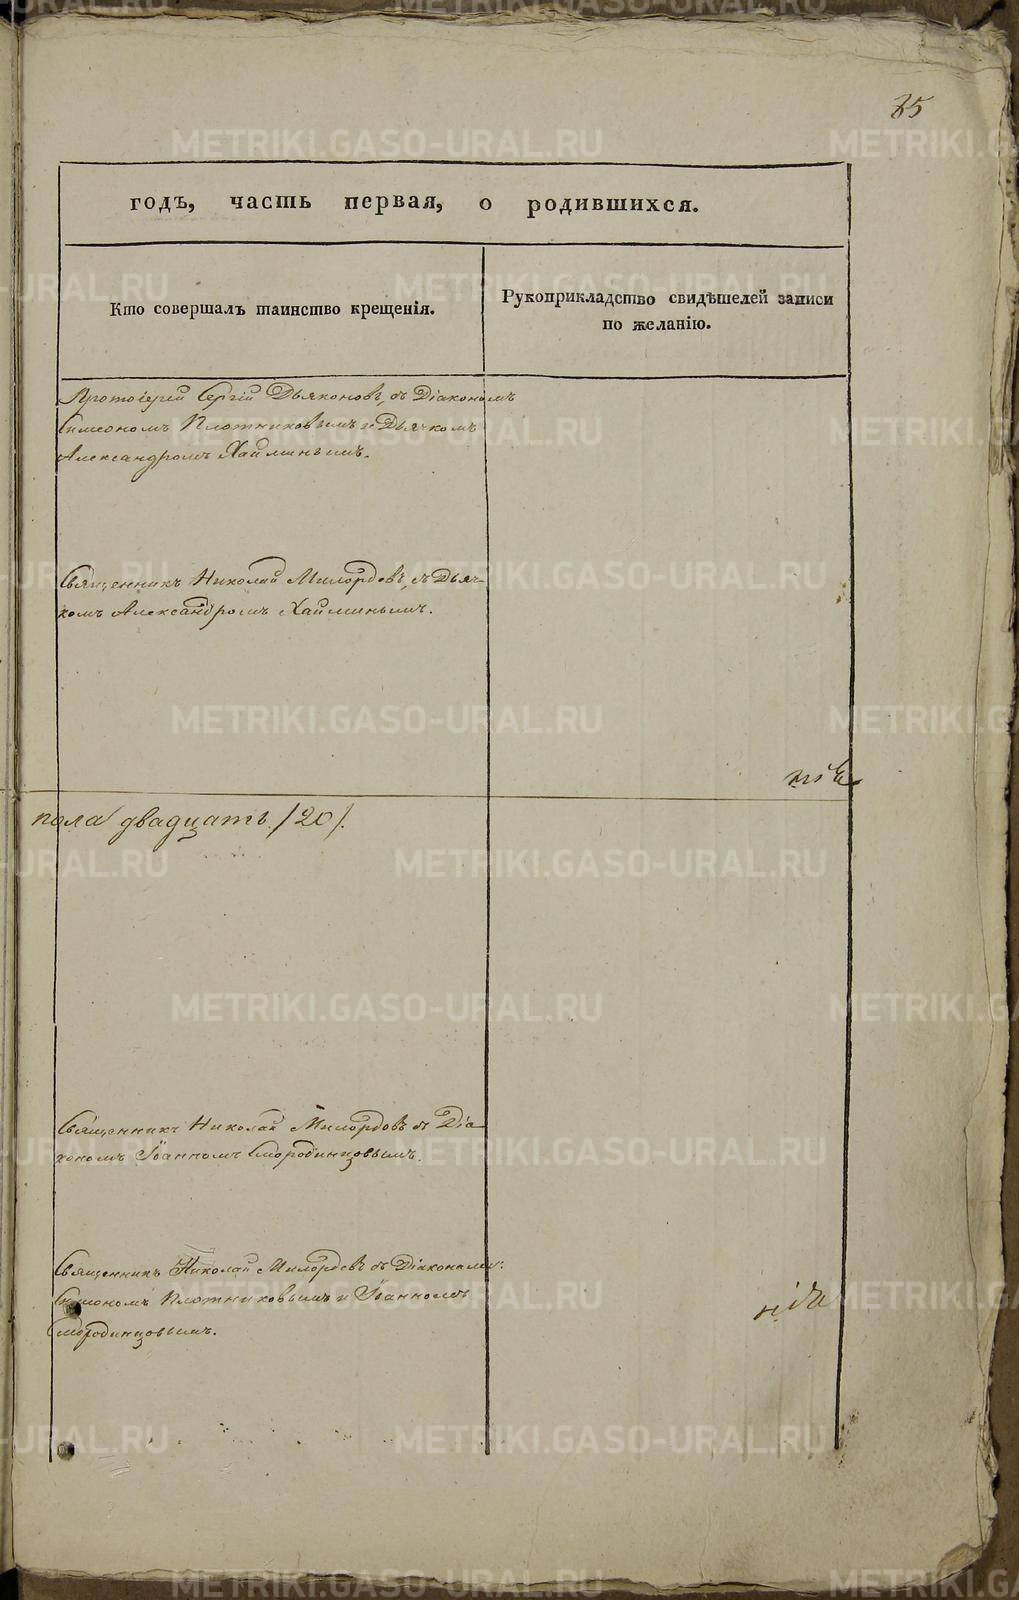 85
годъ, часть первая, о родившихся.
Кто совершалъ таинство крещенія.
Рукоприкладство свидѣтелей записи
по желанію.
Протоіерей Сергій Дьяконовъ, съ Діакономъ
Симеономъ Плотниковымъ и Дьячкомъ
Александромъ Хайминымъ.
Священникъ Николай Милордовъ, съ Дьяч-
комъ Александромъ Хайминымъ.
пола двадцать /20/.
Священникъ Николай Милордовъ съ Діа-
кономъ Іоанномъ Смородинцовымъ.
Священникъ Николай Милордовъ съ Діаконами:
Симеономъ Плотниковымъ и Іоанномъ
Смородинцовымъ.
METRIKI.GASO-URAL.RU